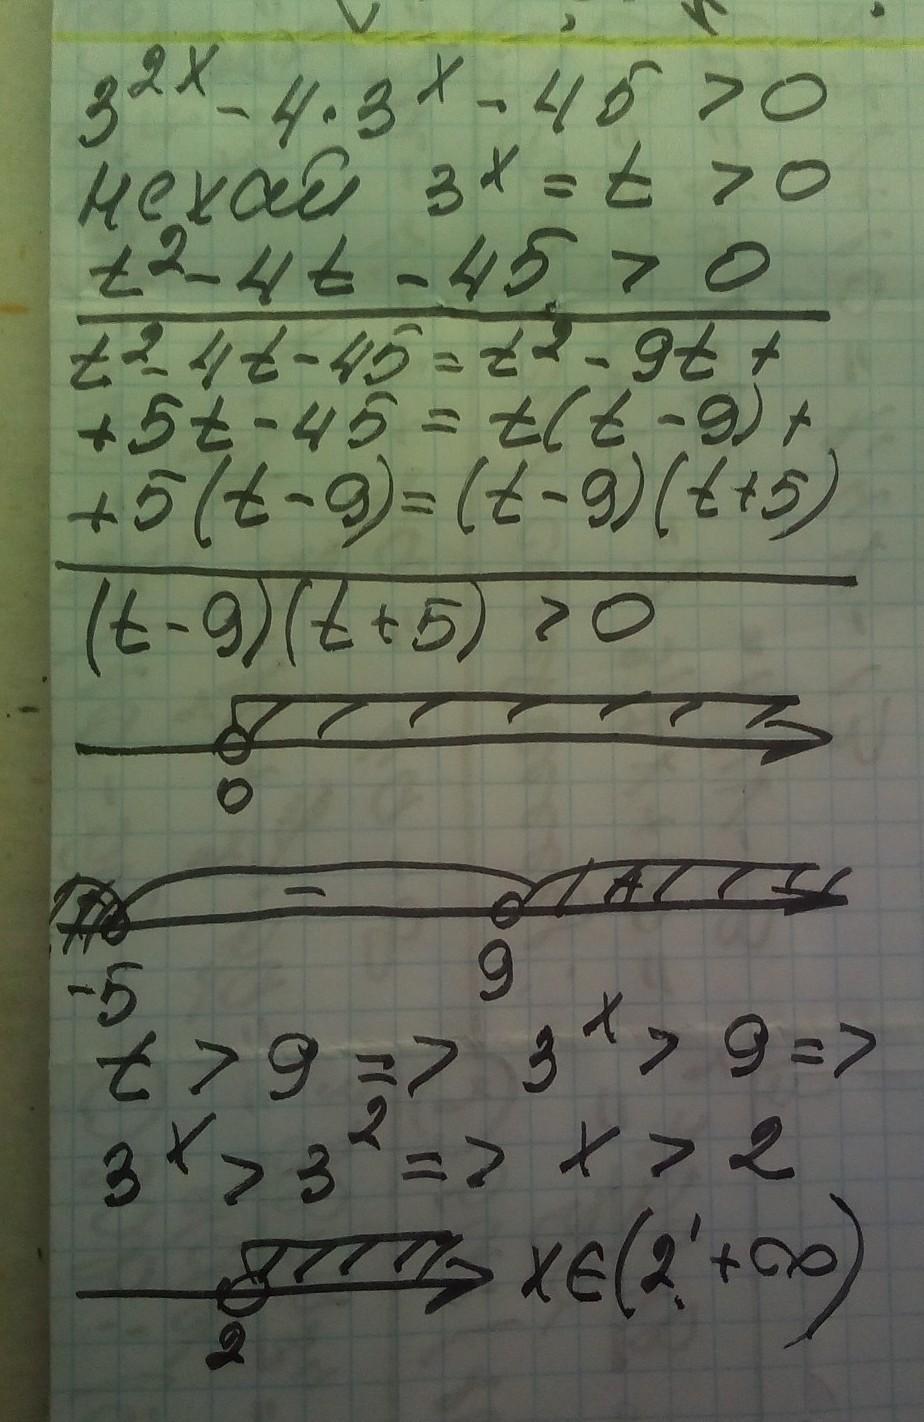 3^2x - 4·3^x - 45 > 0
нехай 3^x = t > 0
t² - 4t - 45 > 0
t² - 4t - 45 = t² - 9t +
+ 5t - 45 = t(t - 9) +
+ 5(t - 9) = (t - 9)(t + 5)
(t - 9)(t + 5) > 0
0
+ - +
-5 9
t > 9 => 3^x > 9 =>
3^x > 3^2 => x > 2
x ∈ (2; +∞)
2